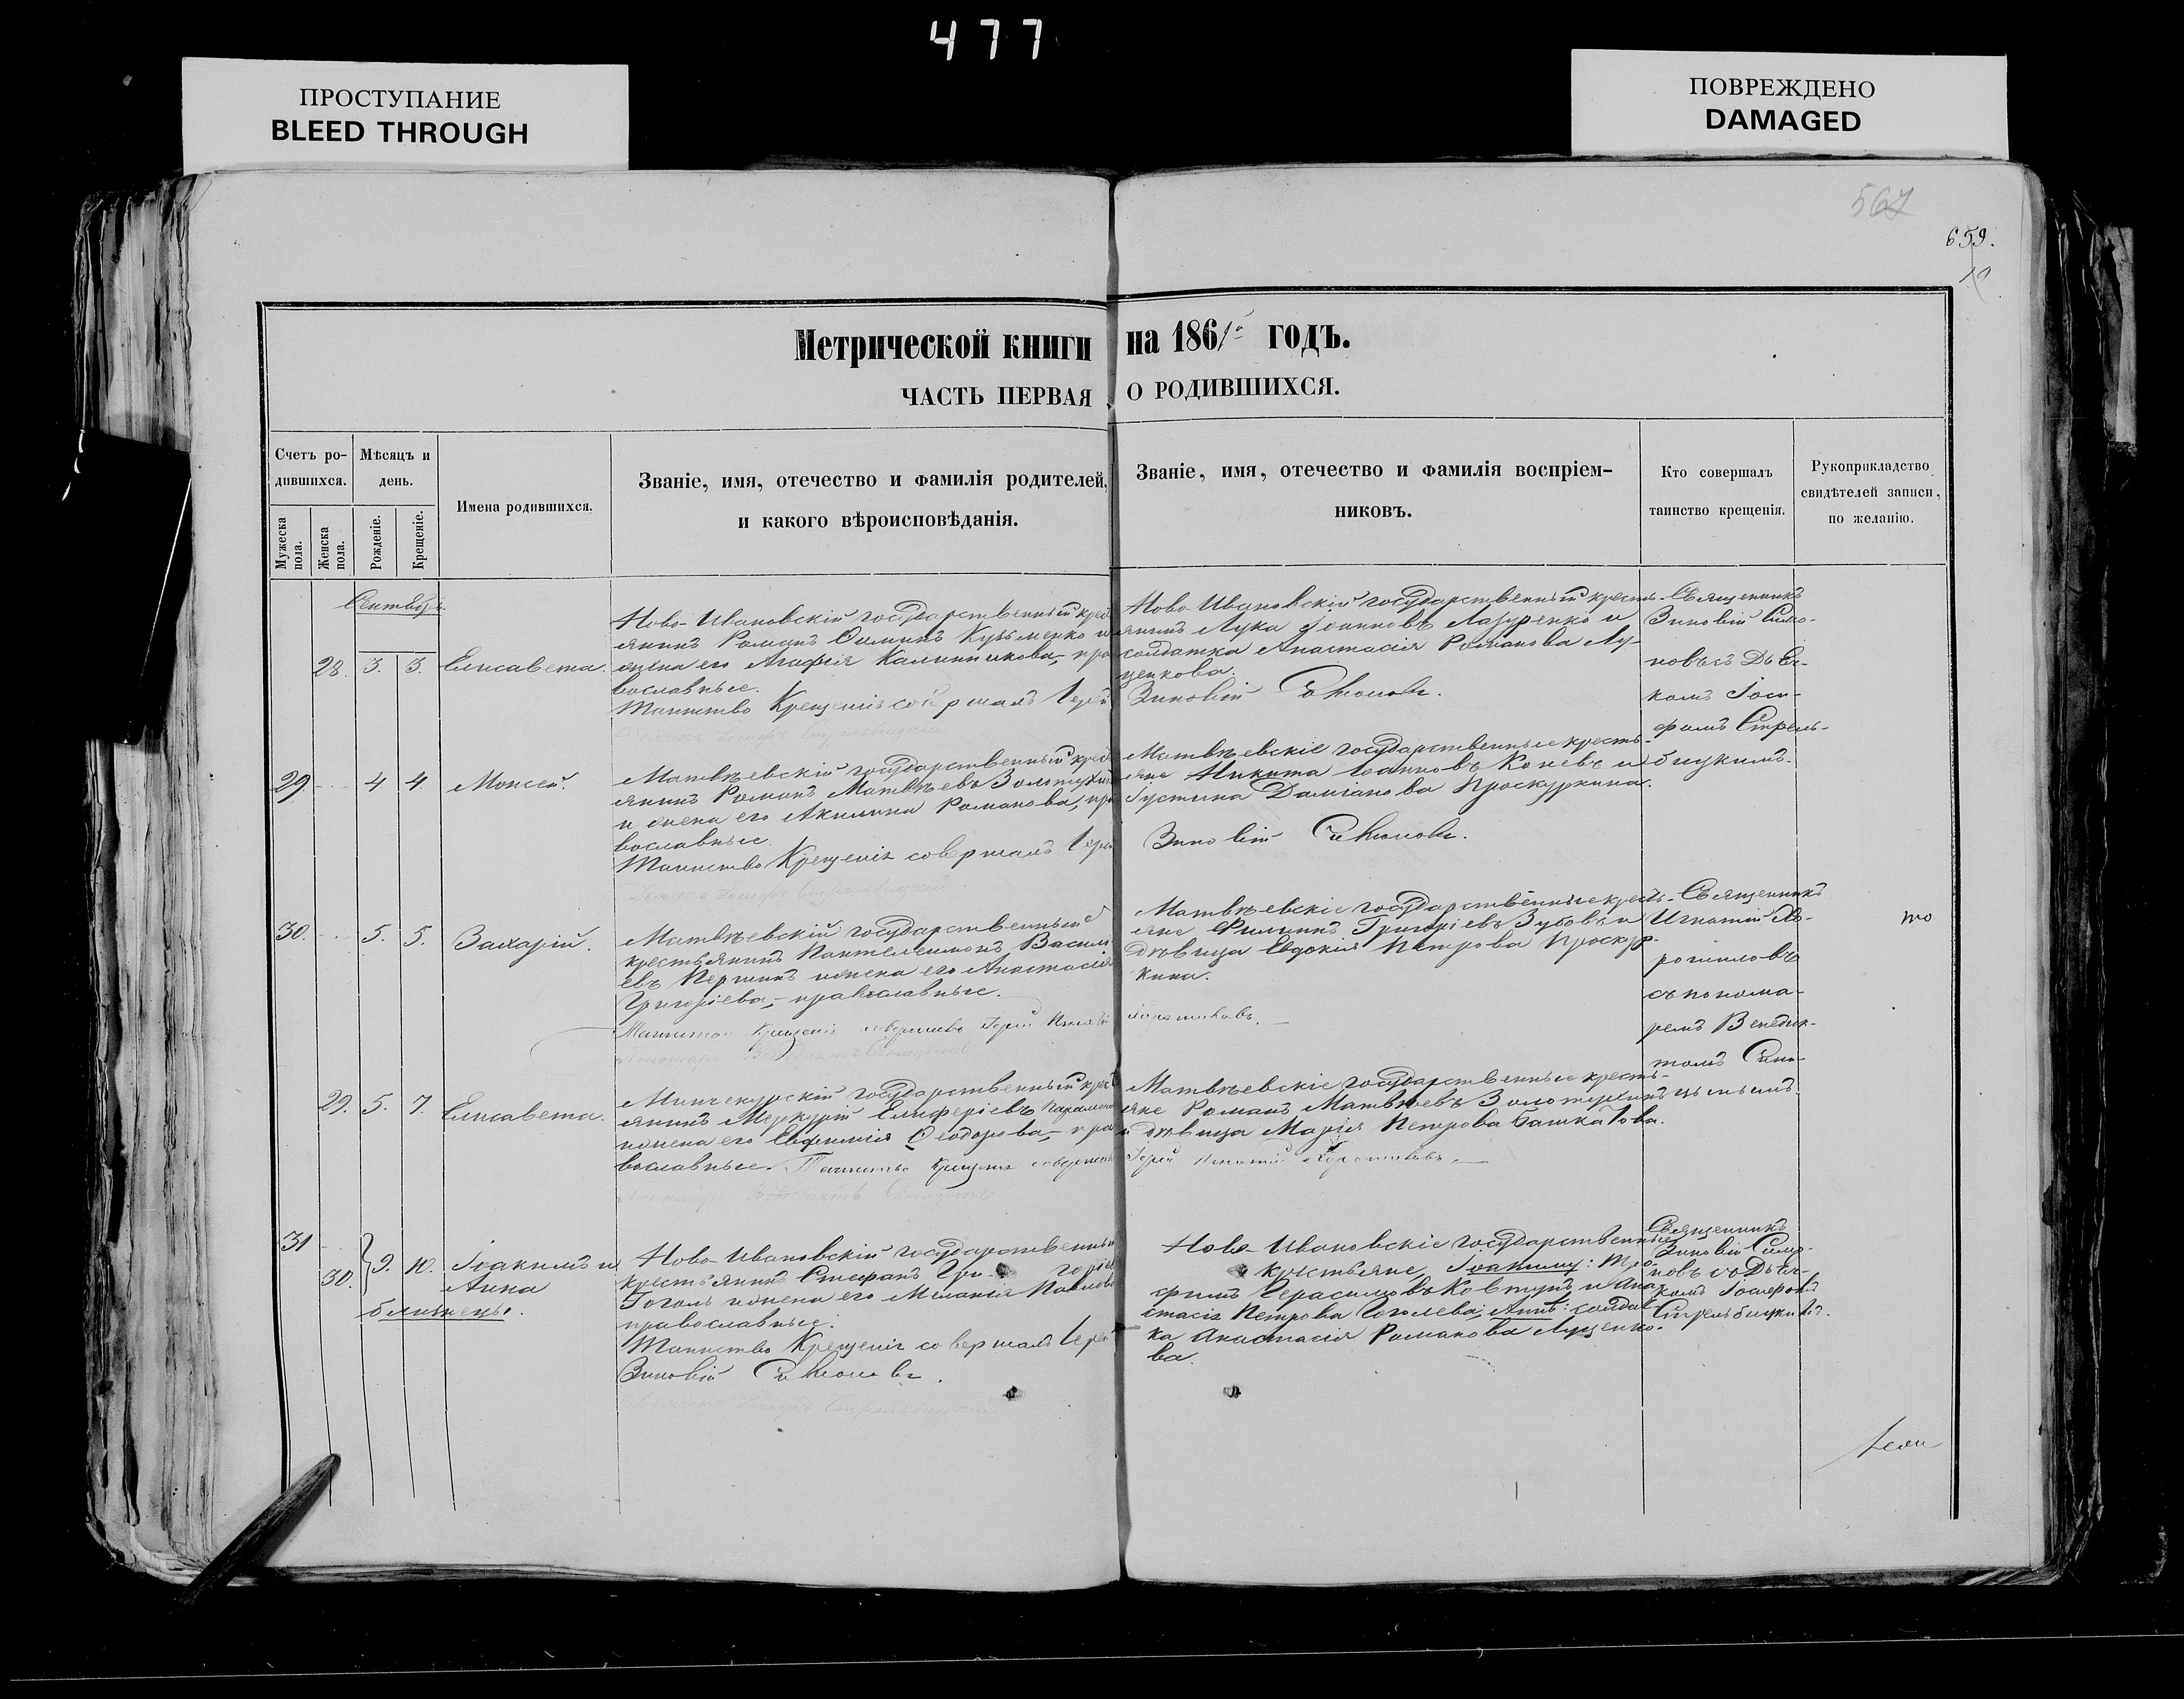 477
ПРОСТУПАНИЕ
BLEED THROUGH
ПОВРЕЖДЕНО
DAMAGED
567
659.
Метрической книги на 1861го годъ.
ЧАСТЬ ПЕРВАЯ, О РОДИВШИХСЯ.
Счетъ ро-
дившихся.
Мужеска
пола.
Женска
пола.
Мѣсяцъ и
день.
Рожденіе.
Крещеніе.
Имена родившихся.
Званіе, имя, отечество и фамилія родителей,
и какого вѣроисповѣданія.
Званіе, имя, отечество и фамилія воспріем-
никовъ.
Кто совершалъ
таинство крещенія.
Рукоприкладство
свидѣтелей записи,
по желанію.
Сентябрь
28. 3. 3. Елисавета.
Ново-Ивановскій государственный крест
янинъ Романъ Кузьменко и
жена его Агафія Калинникова, пра
вославные.
Таинство Крещенія совершалъ Іерей
Ново-Ивановскій государственный кресть-
янинъ Лука Іоанновъ Лазуренко и
солдатка Анастасія Романова Лу-
ценкова.
Зиновій
Священникъ
Зиновій
новъ съ Дьяч-
комъ Іоси-
фомъ Стрель-
бицкимъ.
29 4 4. Моисей.
Матвѣевскій государственный крест
янинъ Романъ Матвѣевъ Золотухин
и жена его Акилина Романова, пра
вославные.
Таинство Крещенія совершалъ Іерей
Матвѣевскіе государственные кресть-
яне Никита Іоанновъ Коневъ и
Іустина Даміанова Проскуркина.
Зиновій
30. 5. 5. Захарій.
Матвѣевскій государственный
крестьянинъ Пантелеимонъ Васильи
евъ Першинъ и жена его Анастасія
Григоріева, православные.
Матвѣевскіе государственные кресть-
яне Филиппъ Григоріевъ Зубовъ и
дѣвица Евдокія Петрова Проскур-
кина.
Священникъ
Игнатій
съ понома-
ремъ Венедик-
томъ
29. 5. 7. Елисавета.
государственный крест
янинъ Меркурій Елиферіевъ
и жена его Евфимія Ѳеодорова, пра
вославные. Таинство Крещенія совершалъ
Матвѣевскіе государственные кресть-
яне Романъ Матвѣевъ Золотухинъ
и дѣвица Марія Петрова Башкатова.
Іерей Игнатій
31
30. 9. 10. Іоакимъ и
Анна
близнецы.
Ново-Ивановскій государственный
крестьянинъ Стефанъ Гри- горіев
Гоголь и жена его Меланія Павлова
православные.
Таинство Крещенія совершалъ Іерей
Зиновій
Ново-Ивановскіе государственные
крестьяне, Іоакиму: Тро-
фимъ Герасимовъ Ковтунъ и Ана-
стасія Петрова Гоголева; Аннѣ: солдат
ка Анастасія Романова Луценко-
ва.
Священникъ
Зиновій
новъ съ Дьяч-
комъ Іосифомъ
Стрельбицкимъ.